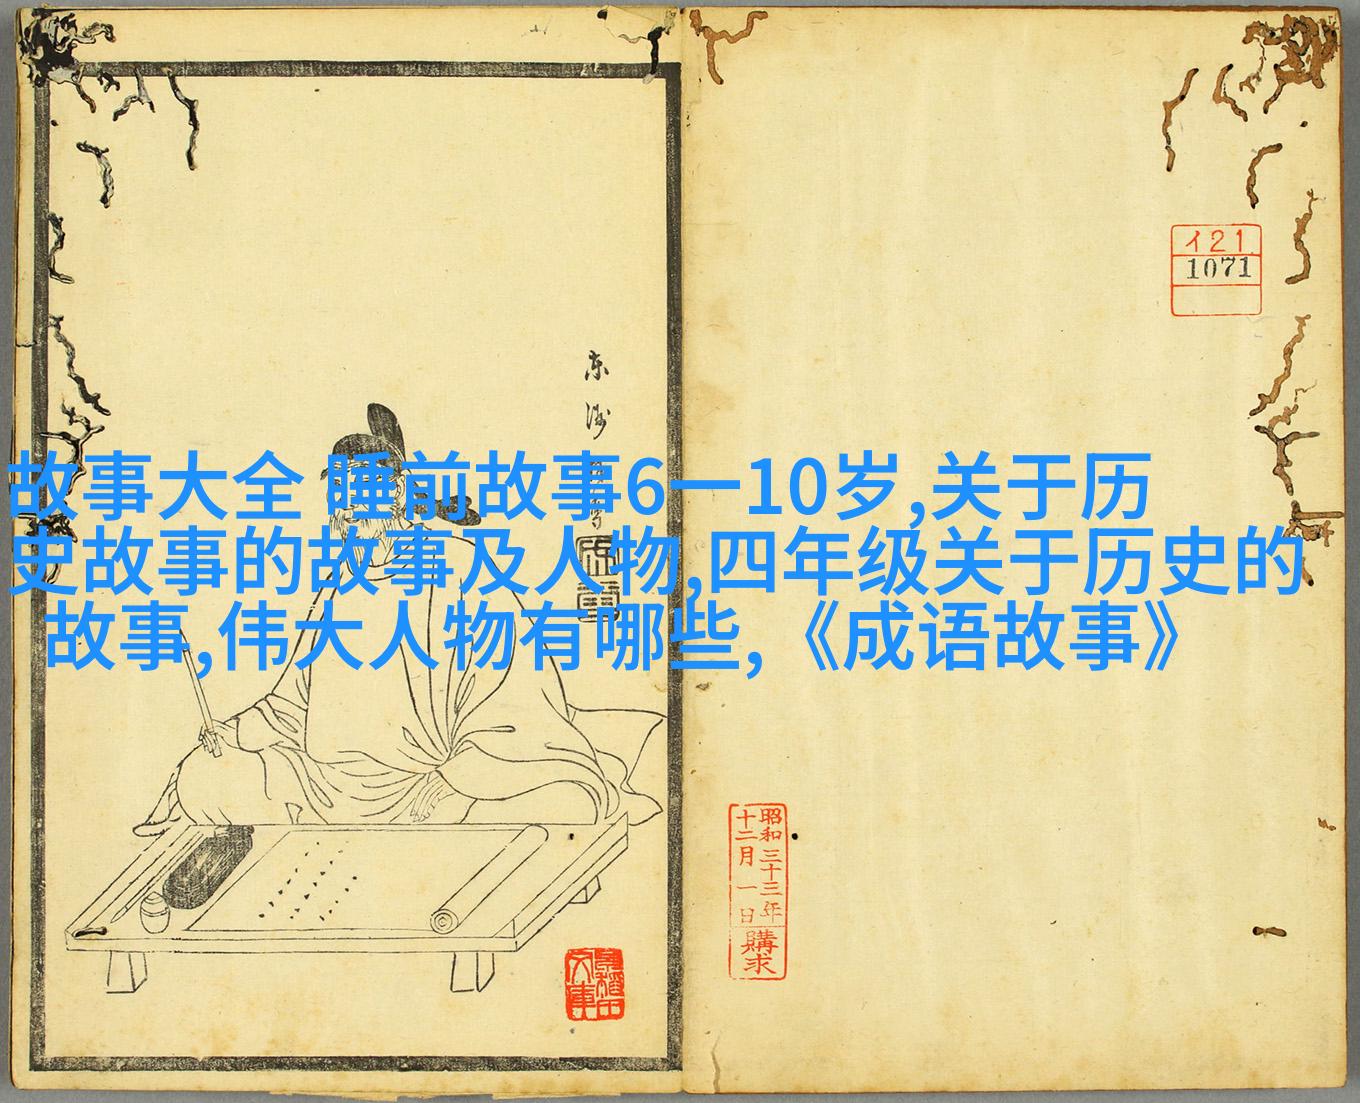 故事大全 睡前故事6一10岁,关于历
史故事的故事及人物,四年级关于历史的
故事,伟大人物有哪些,《成语故事》
イ21
1071
昭和三十三年
十二月一日
購求